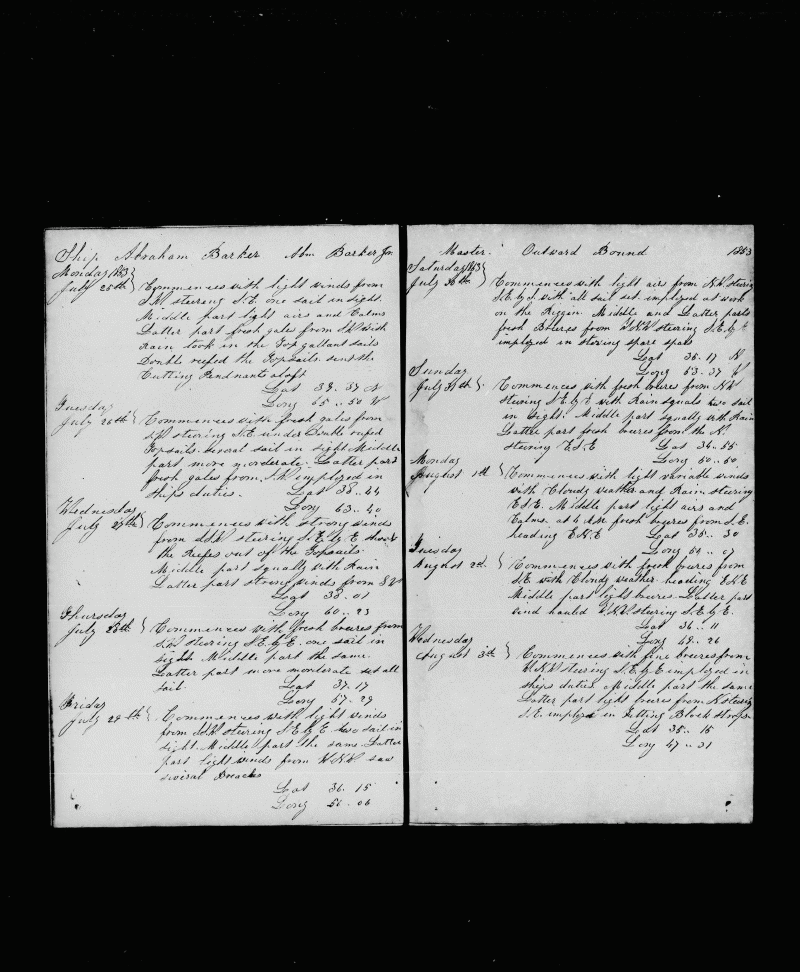 Ship Abraham Barker Abm Barker Jn
Monday 1853
July 25th Commences with light winds from
S.W. steering S.E. one sail in sight.
Middle part light airs and Calms
Latter part fresh gales from S.W. with
Rain took in the Topgallant sails
Double reefed the Topsails. sent the
Cutting Pendants aloft
Lat 39.. 37 N
Long 65.. 50 W
Tuesday
July 26th Commences with fresh gales from
S.W. steering S.E. under Double reefed
Topsails. several sail in sight Middle
part more moderate. Latter part
fresh gales from S.W. employed in
Ships duties. Lat 38.. 44
Long 63.. 40
Wednesday
July 27th Commences with strong winds
from S.S.W. steering S.E. by E. shook
the Reefes out of the Topsails.
Middle part squally with Rain
Latter part strong winds from S W
Lat 38.. 01
Long 60.. 23
Thursday
July 28th Commences with fresh breezes from
S.W. steering S.E. by E. one sail in
sight Middle part the same.
Latter part more moderate set all
sail. Lat 37.. 17
Long 57.. 29
Friday
July 29th Commences with light winds
from S.S.W. steering S.E. by E. two sail in
sight. Middle part the same Latter
part light winds from W.N.W. saw
several
Lat 36.. 15
Long 56.. 06
Master. Outward Bound 1853
Saturday 1853
July 30th Commences with light airs from N.W. steering
S.E. by S. with all sail set. employed at work
on the Riggin. Middle and Latter parts
fresh Breezes from W.N.W. steering S.E. by E.
employed in stowing spare spars
Lat 35.. 17 N
Long 53.. 37 W
Sunday
July 31th Commences with fresh breezes from N.W.
steering S.E. by E. with Rain squals two sail
in sight. Middle part squally with Rain
Latter part fresh breezes from the N.
steering E.S.E Lat 34.. 55
Long 50.. 50
Monday
August 1th Commences with light variable winds
with Cloudy weather and Rain. steering
E.S.E. Middle part light airs and
Calms. at 4 A.M. fresh breezes from S.E.
heading E.N.E Lat 35.. 30
Long 07
Tuesday
August 2d. Commences with fresh breezes from
S.E. with Cloudy weather. heading E.N.E
Middle part light breezes. Latter part
wind hauled W.N.W. steering S.E. by E.
Lat 36.. 11
Long 49.. 26
Wednesday
August 3th Commences with fine breezes from
W.N.W. steering S.E. by E employed in
ships duties. Middle part the same
Latter part light breezes from N. steering
S.E. employed in fitting Block straps
Lat 35.. 15
Long 47.. 31